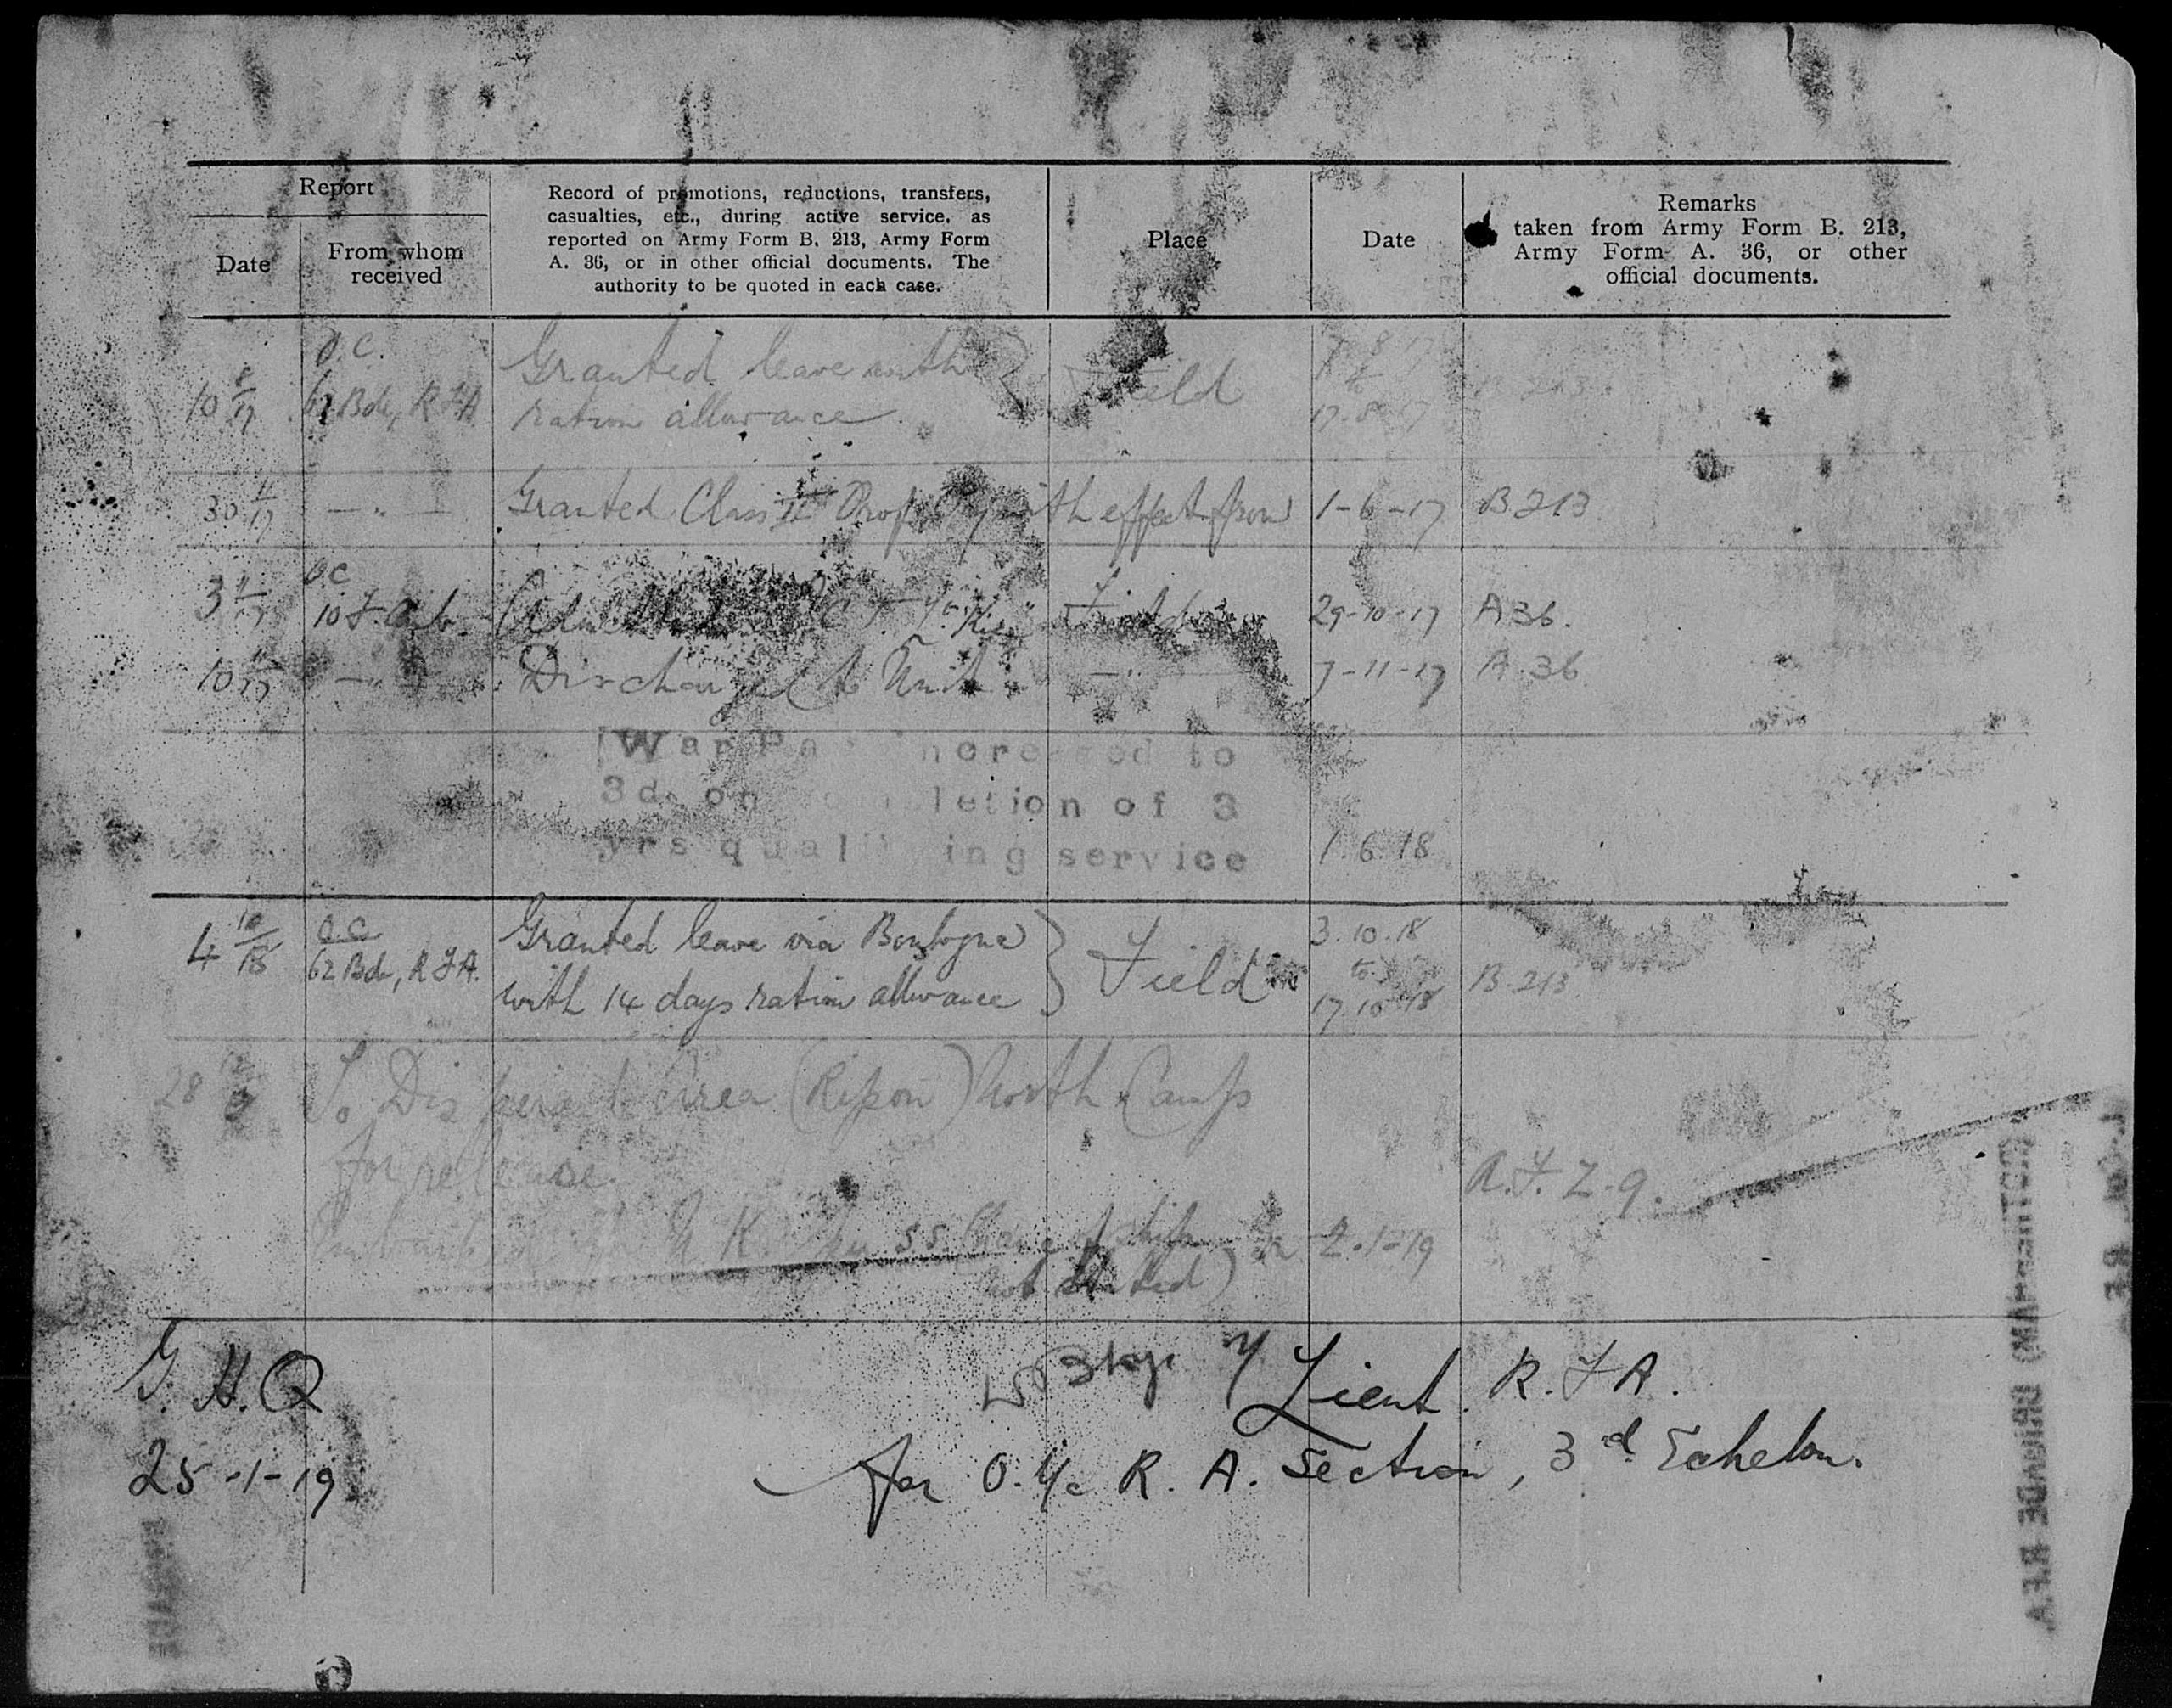 Report
Date
From whom
received
Record of promotions, reductions, transfers,
casualties, etc., during active service, as
reported on Army Form B. 213, Army Form
A. 36, or in other official documents. The
authority to be quoted in each case.
Place
Date
Remarks
taken from Army Form B. 213,
Army Form A. 36, or other
official documents.
10 8/17
O.C.
62 Bde, R F A
Granted leave with
ration allowance.
Field
8 17
to
17-8-17
B 213
30 11/17
— " —
Granted Class II Prof Pay with effect from
1-6-17
B 213
3 11/17
O.C
10 F. Amb.
Admitted
Field
29-10-17
A 36.
10 11/17
— " —
Discharged to Unit
— " —
7-11-17
A. 36
War Pay increased to
3d. on completion of 3
yrs qualifying service
1.6.18
4 10/18
O.C
62 Bde, R F A.
Granted leave via Boulogne
with 14 days ration allowance
Field
3.10.18
to
17.10.18
B 213
28 12
To Dispersal Area (Ripon) North Camp
for release
A.F. Z-9.
Embarked for U.K. per SS (Name of ship
not stated)
2-1-19
G. H. Q
25-1-19
Lieut. R. F A.
for O. i/c R. A. Section, 3d Echelon.
BRIGADE R.F.A.